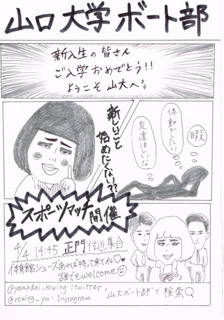 山口大学ボート部
新入生の皆さん
ご入学おめでとう!!
ようこそ山大へ。
新しいこと
始めたくない??
暇
体動かしたい
友達ほしいな
スポーツマッチ
開催
4/4 14:45 正門付近集合
体育館シューズあれば持って来てね♡
誰でもwelcome
@yamadai_rowing : twitter,
@rowing_yu : Instagram
山大ボート部で検索